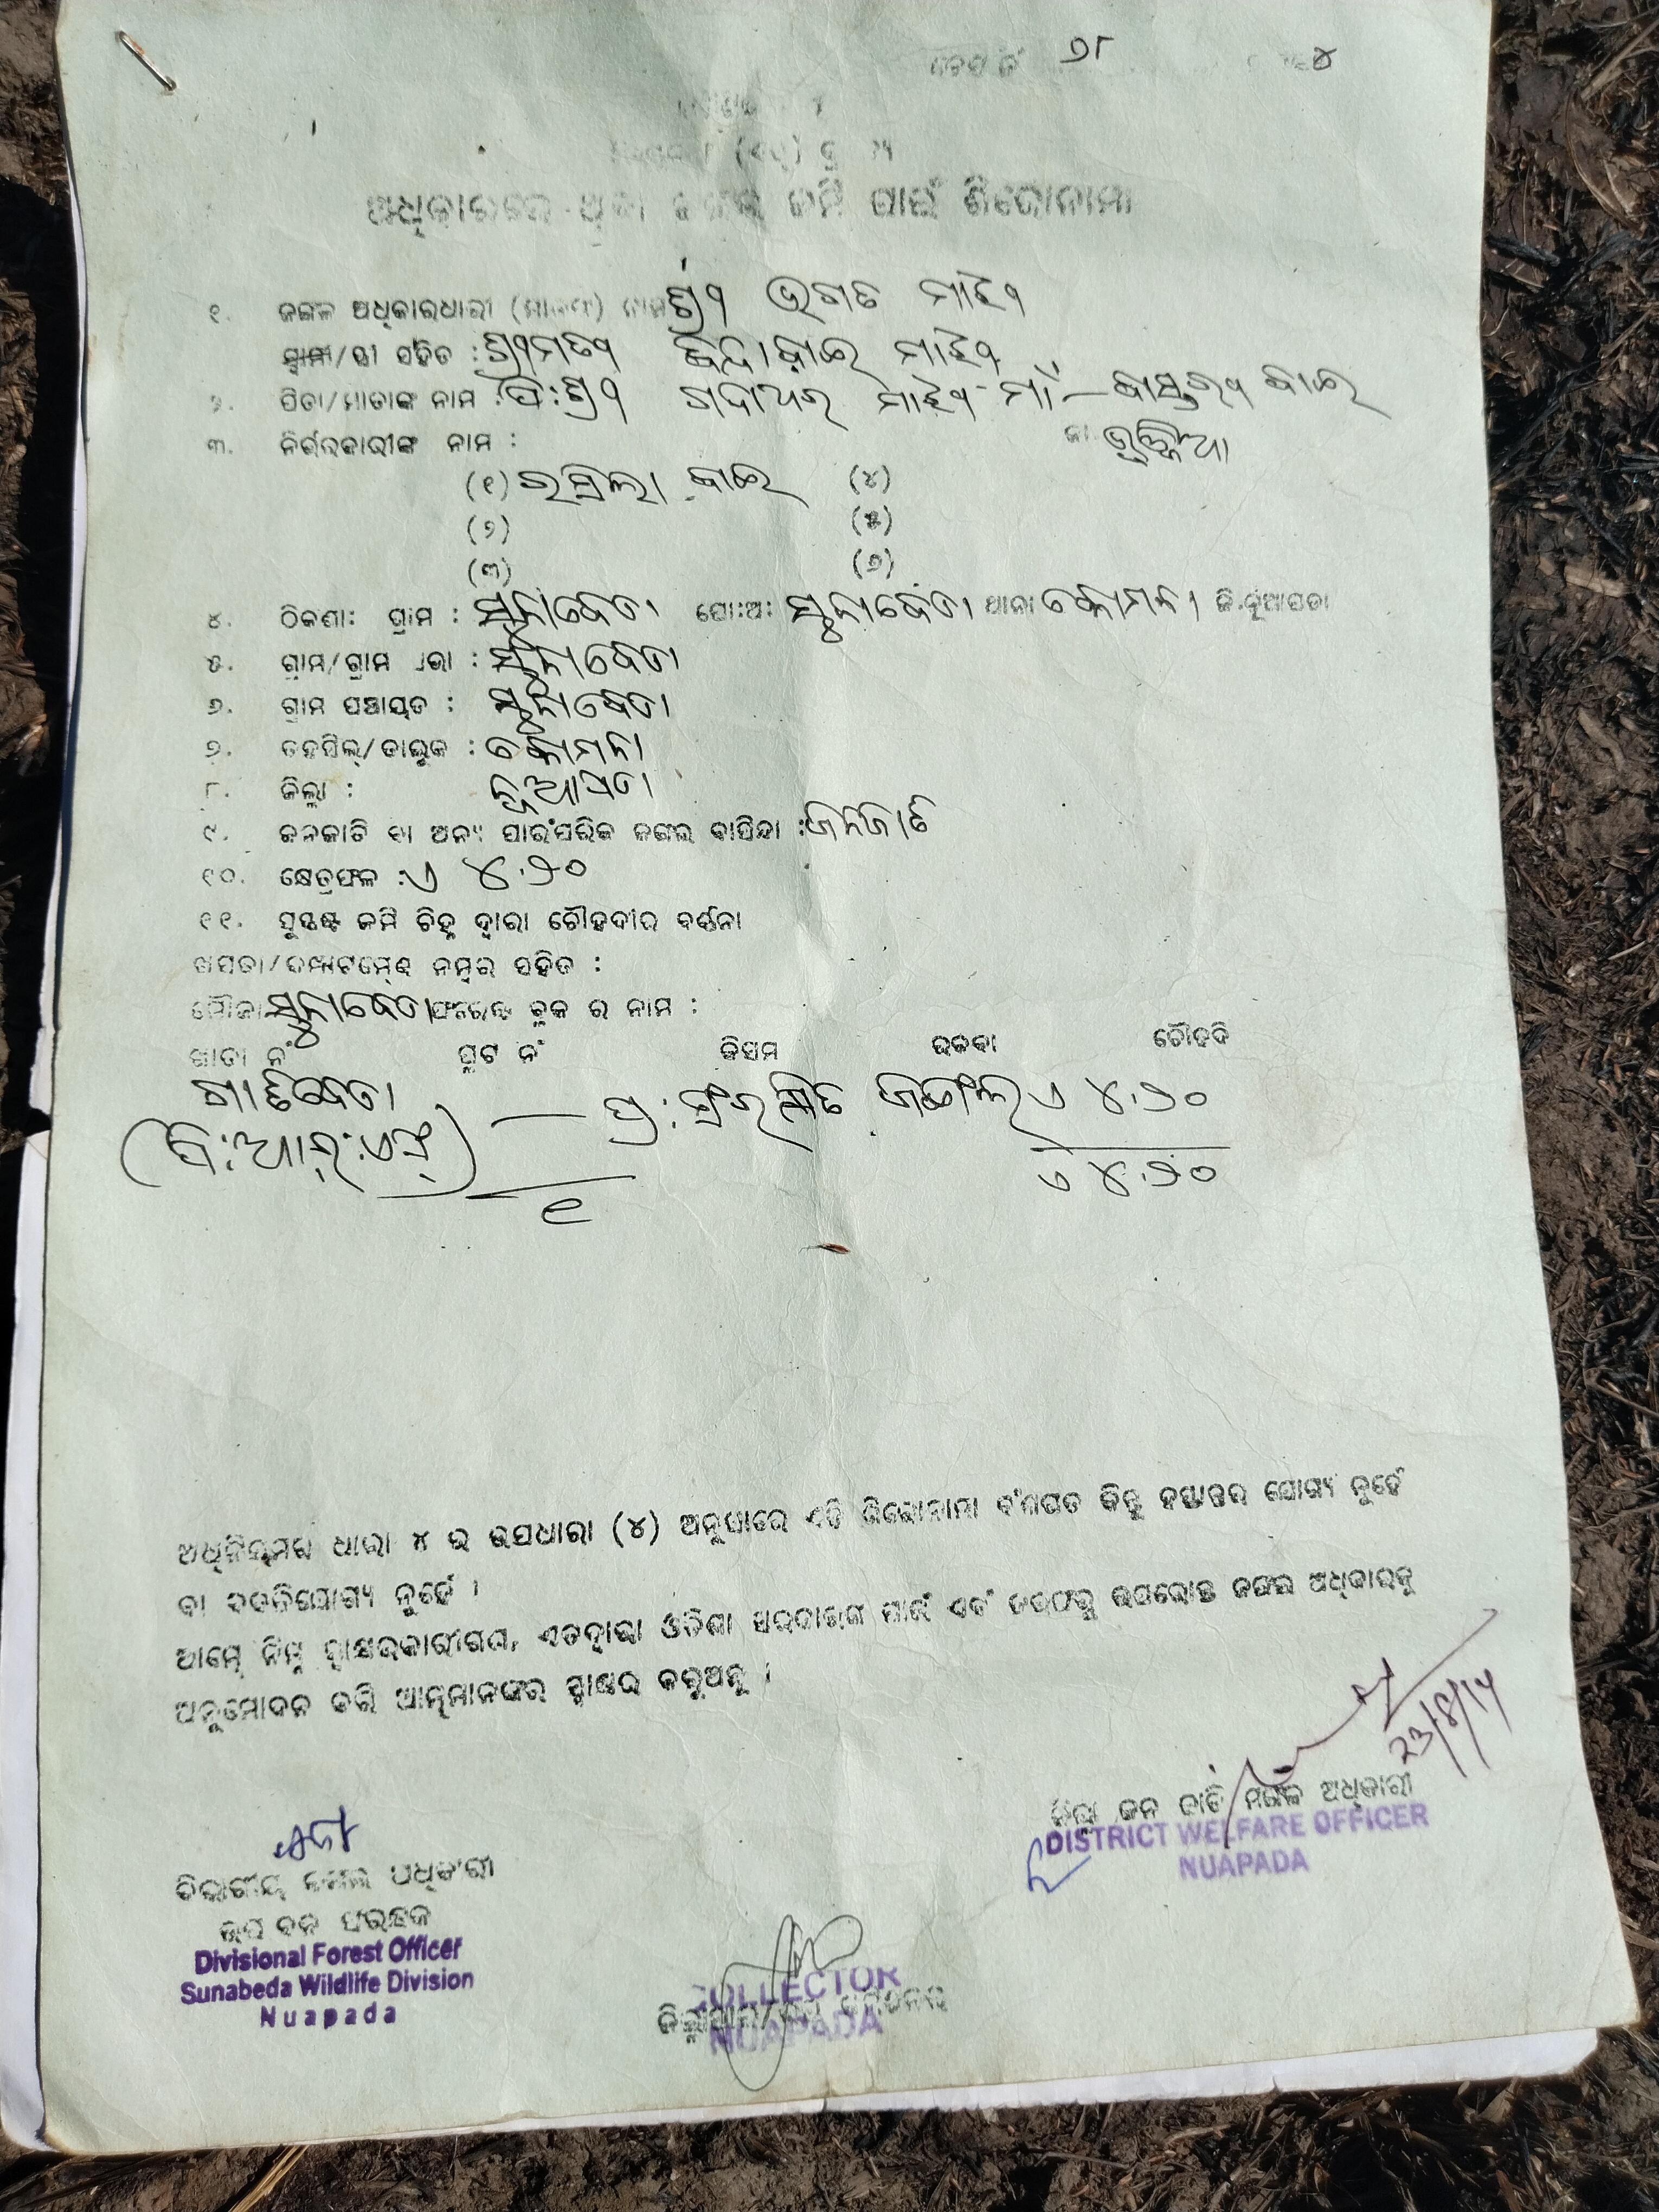 ୬୮ ୪
ଅଧିକାରରେ ଥିବା ଜଙ୍ଗଲ ଜମି ପାଇଁ ଶିରୋନାମା
୧. ଜଙ୍ଗଳ ଅଧିକାରଧାରୀ ଶ୍ରୀ ଭଗତ ମାଝୀ
ସ୍ବାମୀ/ସ୍ତ୍ରୀ ସହିତ : ଶ୍ରୀମତୀ ମାଝୀ
୨. ପିତା/ମାତାଙ୍କ ନାମ : ପି:ଶ୍ରୀ ଗଦାଧର ମାଝୀ ମା - ବାଇ
୩. ନିର୍ଭରକାରୀଙ୍କ ନାମ : ଭୁଞ୍ଜିଆ
(୧) ବାଇ (୪)
(୨) (୫)
(୩) (୬)
୪. ଠିକଣା: ଗ୍ରାମ : ସୁନାବେଡା ପୋ:ଅ: ସୁନାବେଡା ଥାନା କୋମନା ଜି.ନୂଆପଡା
୫. ଗ୍ରାମ/ଗ୍ରାମ ସଭା : ସୁନାବେଡା
୬. ଗ୍ରାମ ପଞ୍ଚାୟତ : ସୁନାବେଡା
୭. ତହସିଲ୍/ତାଲୁକ : କୋମନା
୮. ଜିଲ୍ଲା : ନୂଆପଡା
୯. ଜନଜାତି ବା ଅନ୍ୟ ପାରଂପରିକ ଜଙ୍ଗଲ ବାସିନ୍ଦା : ଜନଜାତି
୧୦. କ୍ଷେତ୍ରଫଳ : ଏ ୪.୨୦
୧୧. ସୁସ୍ପଷ୍ଟ ଜମି ଚିହ୍ନ ଦ୍ୱାରା ଚୌହଦୀର ବର୍ଣ୍ଣନା
ଖସଡା/କମ୍ପାଟମେଣ୍ଟ ନମ୍ବର ସହିତ :
ମୌଜା ସୁନାବେଡା ଫରେଷ୍ଟ ବ୍ଲକ ର ନାମ :
ଖାତା ନଂ ପ୍ଲଟ ନଂ କିସମ ରକବା ଚୌହଦି
ଗାଣ୍ଡିବେଡା — ପ୍ର: ସଂରକ୍ଷିତ ଜଙ୍ଗଲ ଏ ୪.୨୦
(ପି:ଆର୍:ଏଫ୍) ଏ ୪.୨୦
୧
ଅଧିନିୟମର ଧାରା ୪ ର ଉପଧାରା (୪) ଅନୁସାରେ ଏହି ଶିରୋନାମା ବଂଶଗତ କିନ୍ତୁ ହସ୍ତାନ୍ତର ଯୋଗ୍ୟ ନୁହେଁ
ବା ବଦଳିଯୋଗ୍ୟ ନୁହେଁ ।
ଆମ୍ଭେ ନିମ୍ନ ସ୍ୱାକ୍ଷରକାରୀଗଣ, ଏତଦ୍ୱାରା ଓଡିଶା ସରକାରଙ୍କ ପାଇଁ ଏବଂ ତରଫରୁ ଉପରୋକ୍ତ ଜଙ୍ଗଲ ଅଧିକାରକୁ
ଅନୁମୋଦନ କରି ଆମ୍ଭମାନଙ୍କର ସ୍ୱାକ୍ଷର କରୁଅଛୁ ।
23/8/14
ଜିଲ୍ଲା ଜନ ଜାତି ମଙ୍ଗଳ ଅଧିକାରୀ
DISTRICT WELFARE OFFICER
NUAPADA
ଡିଭାଗୀୟ ଜଙ୍ଗଲ ଅଧିକାରୀ
ଉପ ବନ ସଂରକ୍ଷକ
Divisional Forest Officer
Sunabeda Wildlife Division
Nuapada
COLLECTOR
NUAPADA